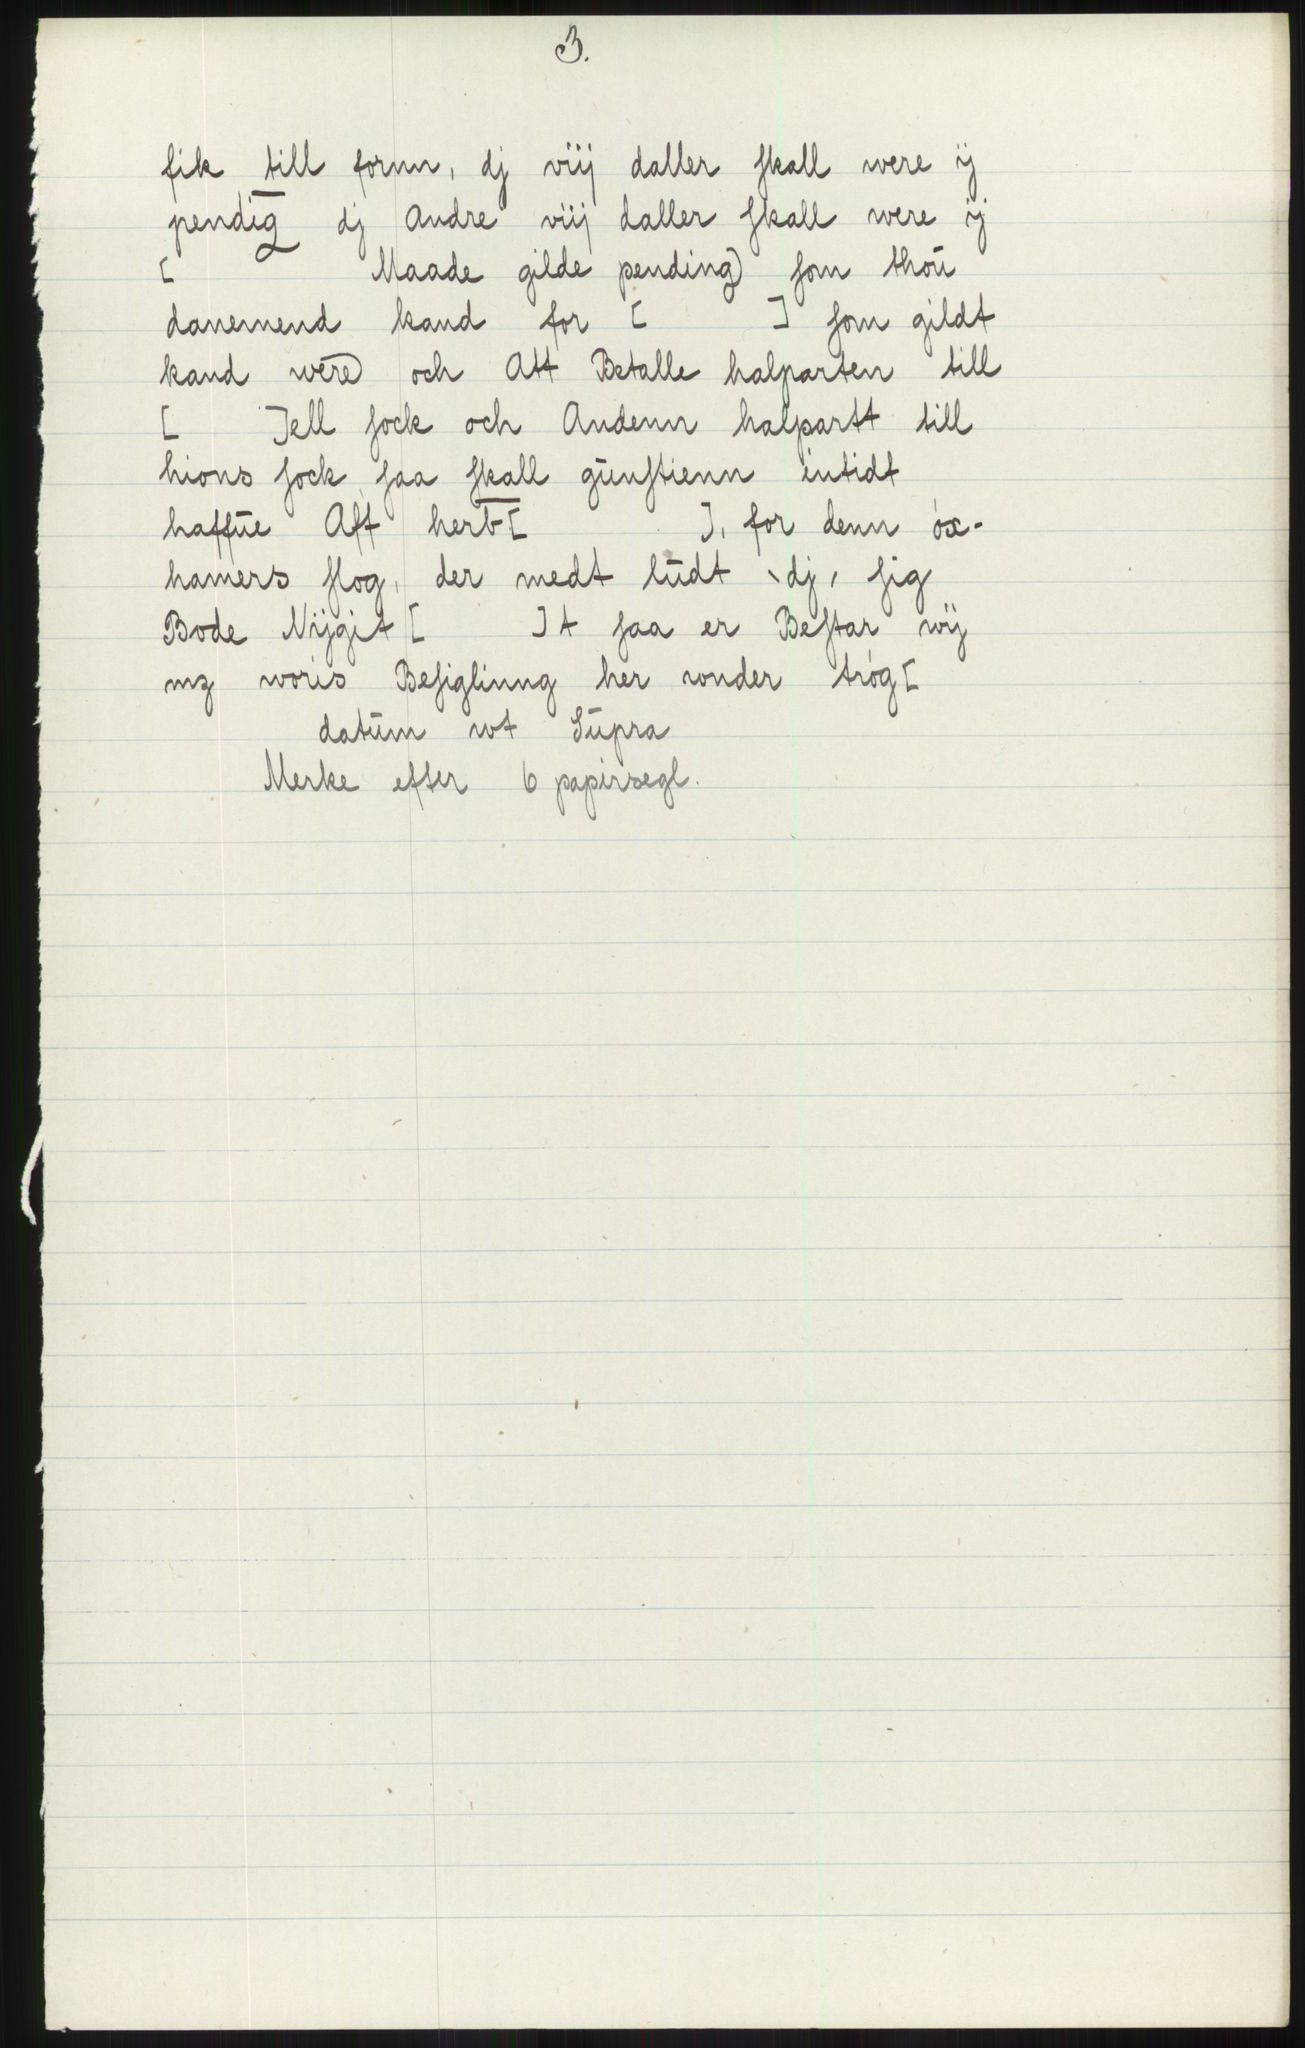 3.
fik till fornn, dj viij daller skall were ij
pendig dj Andre viij daller skall were ij
[ Maade gilde pending) som thou
danemend kand for [ ] som gildt
kand were och Att Betalle halparten till
[ ]ell sock och Andenn halpartt till
hions sock saa skall gunstienn intidt
haffue Aff herb[ ], for denn óx-
hamers slog, der medt ludt \dj, sig
Bode Nijgit [ ]t saa er Bestar wij
mz woris Besiglinng her wonder tróg[
datum wt Supra
Merke efter 6 papirsegl.